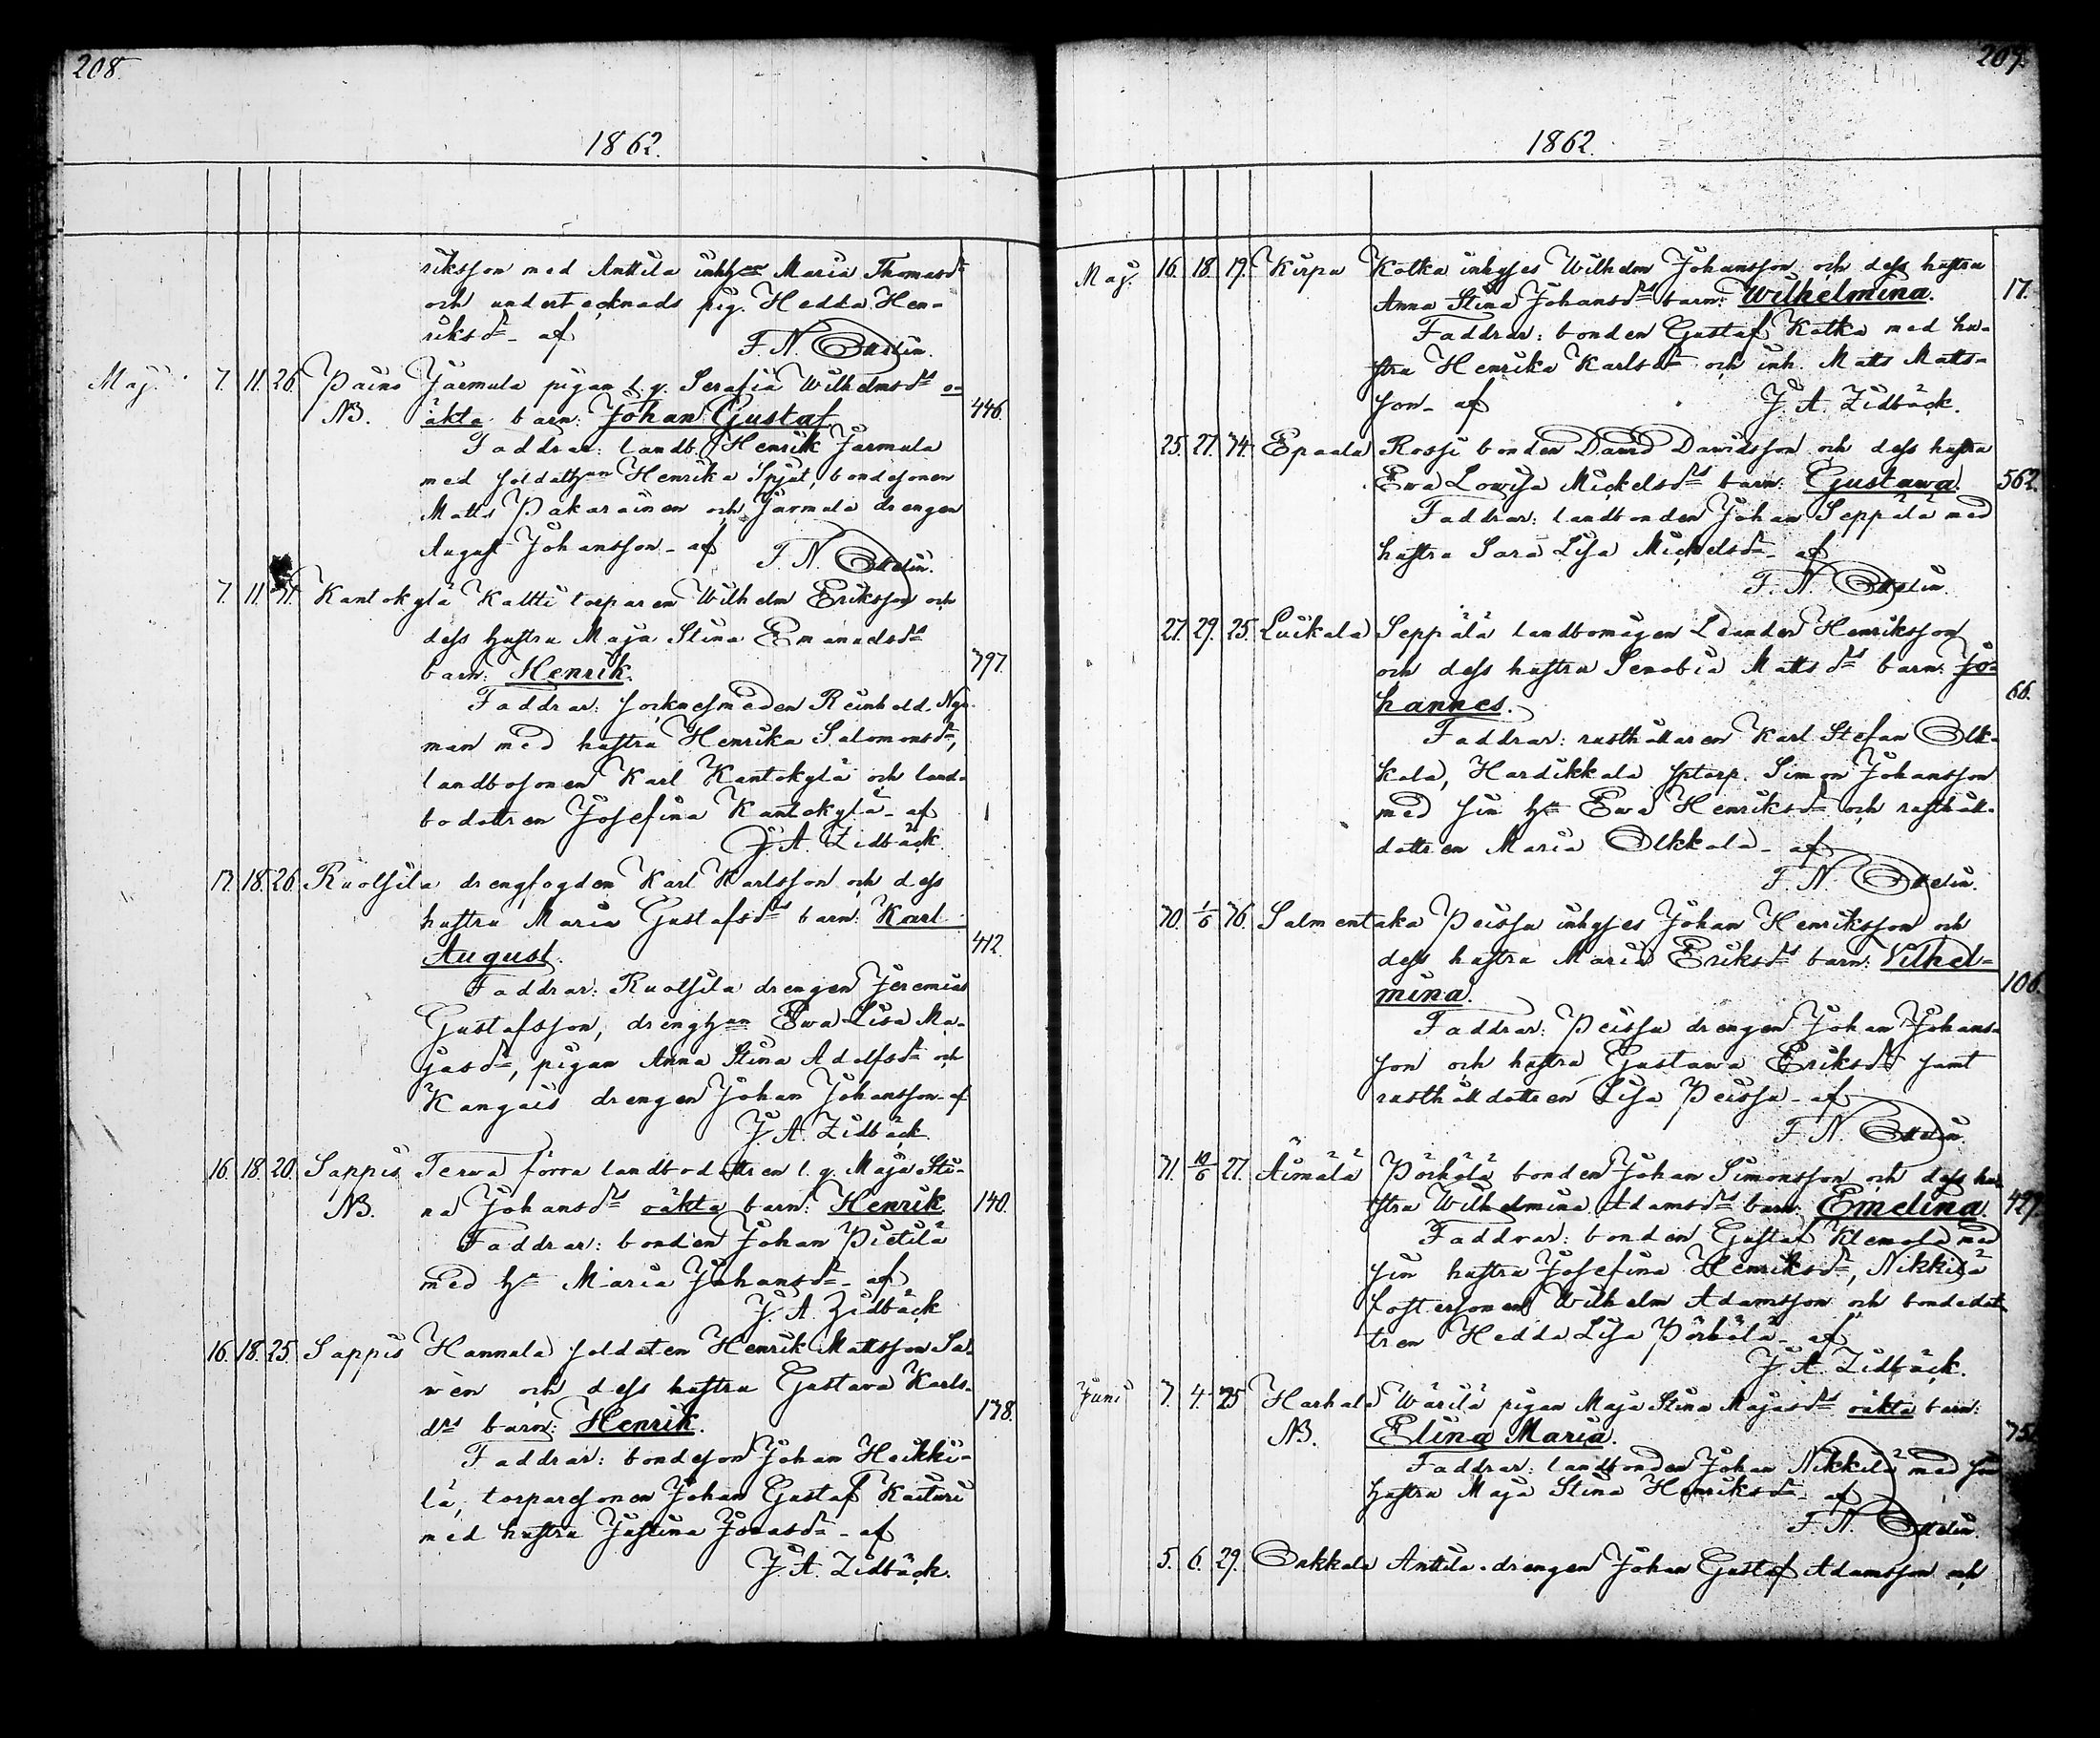 208.
1862.
riksson med Anttila inhyses Maria Thomasdr
och undertecknads pig. Hedda Hen-
riksdr - af
F. N. Ottelin.
Maj. 7. 11. 26. Paino Jarmula pigan l. g. Serafia Wilhelmsdrs o-
NB. äkta barn: Johan Gustaf 446.
Faddrar: landb. Henrik Jarmula
med soldathun Henrika Spjut, bondesonen
Matts Pakarainen och Jarmula drengen
August Johansson - af F. N. Ottelin.
7. 11. 31. Kantokylä Kaltti torparen Wilhelm Eriksson och
dess hustru Maja Stina Emanuelsdrs
barn: Henrik. 797.
Faddrar: socknesmeden Reinhold Ny-
man med hustru Henrika Salomonsdr,
landbosonen Karl Kantokylä och land-
bodottren Josefina Kantokylä - af
J. A. Zidbäck
17. 18. 26. Ruolsila drengfogden Karl Karlsson och dess
hustru Maria Gustafsdrs barn: Karl
August. 412.
Faddrar: Ruolsila drengen Jeremias
Gustafsson, drenghun Ewa Lisa Ma-
jasdr, pigan Anna Stina Adolfsdr och
Kangais drengen Johan Johansson - af
J. A. Zidbäck.
16. 18. 20. Sappis Terwa förra landbodottren l. g. Maja Sti-
NB. na Johansdrs oäkta barn: Henrik 140.
Faddrar: bonden Johan Pietilä
med hu Maria Johansdr - af
J. A. Zidbäck
16. 18. 25. Sappis Hannula soldaten Henrik Mattsson Sa-
wén och dess hustru Gustava Karls-
drs barn: Henrik. 178.
Faddrar: bondeson Johan Heikki-
lä, torparesonen Johan Gustaf Kaituri
med hustru Justina Jonasdr - af
J. A. Zidbäck.
209.
1862.
Maj. 16. 18. 19. Kirpu Kotka inhyses Wilhelm Johansson och dess hustru
Anna Stina Johansdrs barn: Wilhelmina. 17.
Faddrar: bonden Gustaf Kotka med hu-
stru Henrika Karlsdr och inh. Matts Matts-
son - af J. A. Zidbäck.
25. 27. 34. Epaala Rossi bonden David Davidsson och dess hustru
Ewa Lowisa Mickelsdrs barn: Gustawa. 562.
Faddrar: landbonden Johan Seppälä med
hustru Sara Lisa Mickelsdr - af
F. N. Ottelin.
27. 29. 25. Luikala Seppälä landbomågen Leander Henriksson
och dess hustru Senobia Matts drs barn: Jo-
hannes. 66.
Faddrar: rusthållaren Karl Stefan Olk-
kala, Hardikkala sptorp. Simon Johansson
med sin hu Ewa Henriksdr och rusthåll-
dottren Maria Olkkala - af
F. N. Ottelin.
30. 1/6 36. Salmentaka Peissa inhyses Johan Henriksson och
dess hustru Maria Eriksdrs barn: Vilhel-
mina. 106.
Faddrar: Peissa drengen Johan Johans-
son och hustru Gustawa Eriksdr samt
rusthålldottren Lisa Peissa - af
F. N. Ottelin.
31. 10/6 27. Äimälä Pörhölä bonden Johan Simonsson och dess hu-
stru Wilhelmina Adamsdrs barn: Emelina. 429.
Faddrar: bonden Gustaf Klemola med
sin hustru Josefina Henriksdr, Nikkilä
fostersonen Wilhelm Adamsson och bondedot-
tren Hedda Lisa Pörhölä - af
J. A. Zidbäck.
Juni 3. 4. 25 Harhala Wärilä pigan Maja Stina Majasdrs oäkta barn:
NB. Elina Maria.
Faddrar: landbonden Johan Nikkilä med sin
hustru Maja Stina Henriksdr - af
F. N. Ottelin.
5. 6. 29. Sakkala Anttila drengen Johan Gustaf Adamsson och